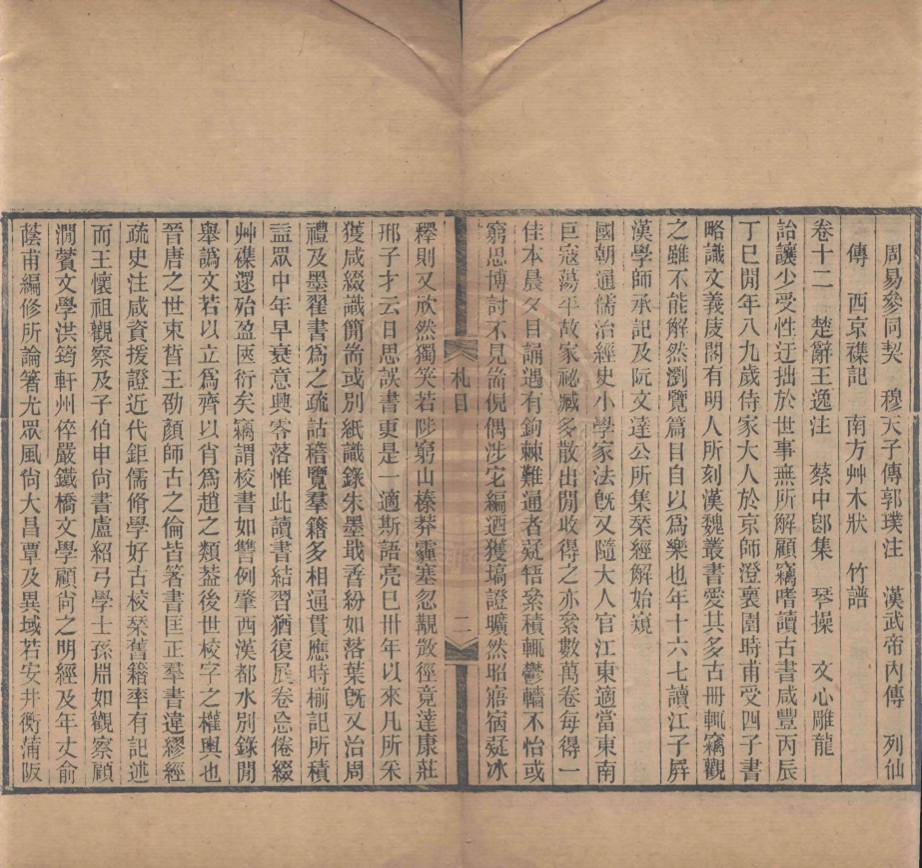 周易參同契　穆天子傳郭璞注　漢武帝內傳　列仙
傳　西京襍記　南方艸木狀　竹譜
卷十二　楚辭王逸注　蔡中郎集　琴操　文心雕龍
詒讓少受性迂拙於世事無所解顧竊嗜讀古書咸豐丙辰
丁巳閒年八九歲侍家大人於京師澄褱園時甫受四子書
略識文義庋閣有明人所刻漢魏叢書愛其多古冊輒竊觀
之雖不能解然瀏覽篇目自以爲樂也年十六七讀江子屏
漢學師承記及阮文達公所集栞經解始窺
國朝通儒治經史小學家法旣又隨大人官江東適當東南
巨寇蕩平故家祕臧多散出閒收得之亦絫數萬卷每得一
佳本晨夕目誦遇有鉤棘難通者疑牾絫積輒鬱轖不怡或
窮思博討不見耑倪偶涉它編迺獲塙證曠然昭寤宿疑冰
釋則又欣然獨笑若陟窮山榛莽霾塞忽覯散徑竟達康莊
邢子才云日思誤書更是一適斯語亮巳卅年以來凡所采
獲咸綴識簡耑或別紙識錄朱墨戢孴紛如落葉旣又治周
禮及墨翟書爲之疏詁稽覽羣籍多相通貫應時椾記所積
益眾中年早衰意興零落惟此讀書結習猶復展卷忘倦綴
艸襍遝殆盈匧衍矣竊謂校書如讐例肇西漢都水別錄閒
舉譌文若以立爲齊以肖爲趙之類葢後世校字之權輿也
晉唐之世束晳王劭顏師古之倫皆箸書匡正羣書違繆經
疏史注咸資援證近代鉅儒脩學好古校栞舊籍率有記述
而王懷祖觀察及子伯申尙書盧紹弓學士孫淵如觀察顧
澗薲文學洪筠軒州倅嚴鐵橋文學顧尙之明經及年丈俞
蔭甫編修所論箸尤眾風尙大昌覃及異域若安井衡蒲阪
札目
二